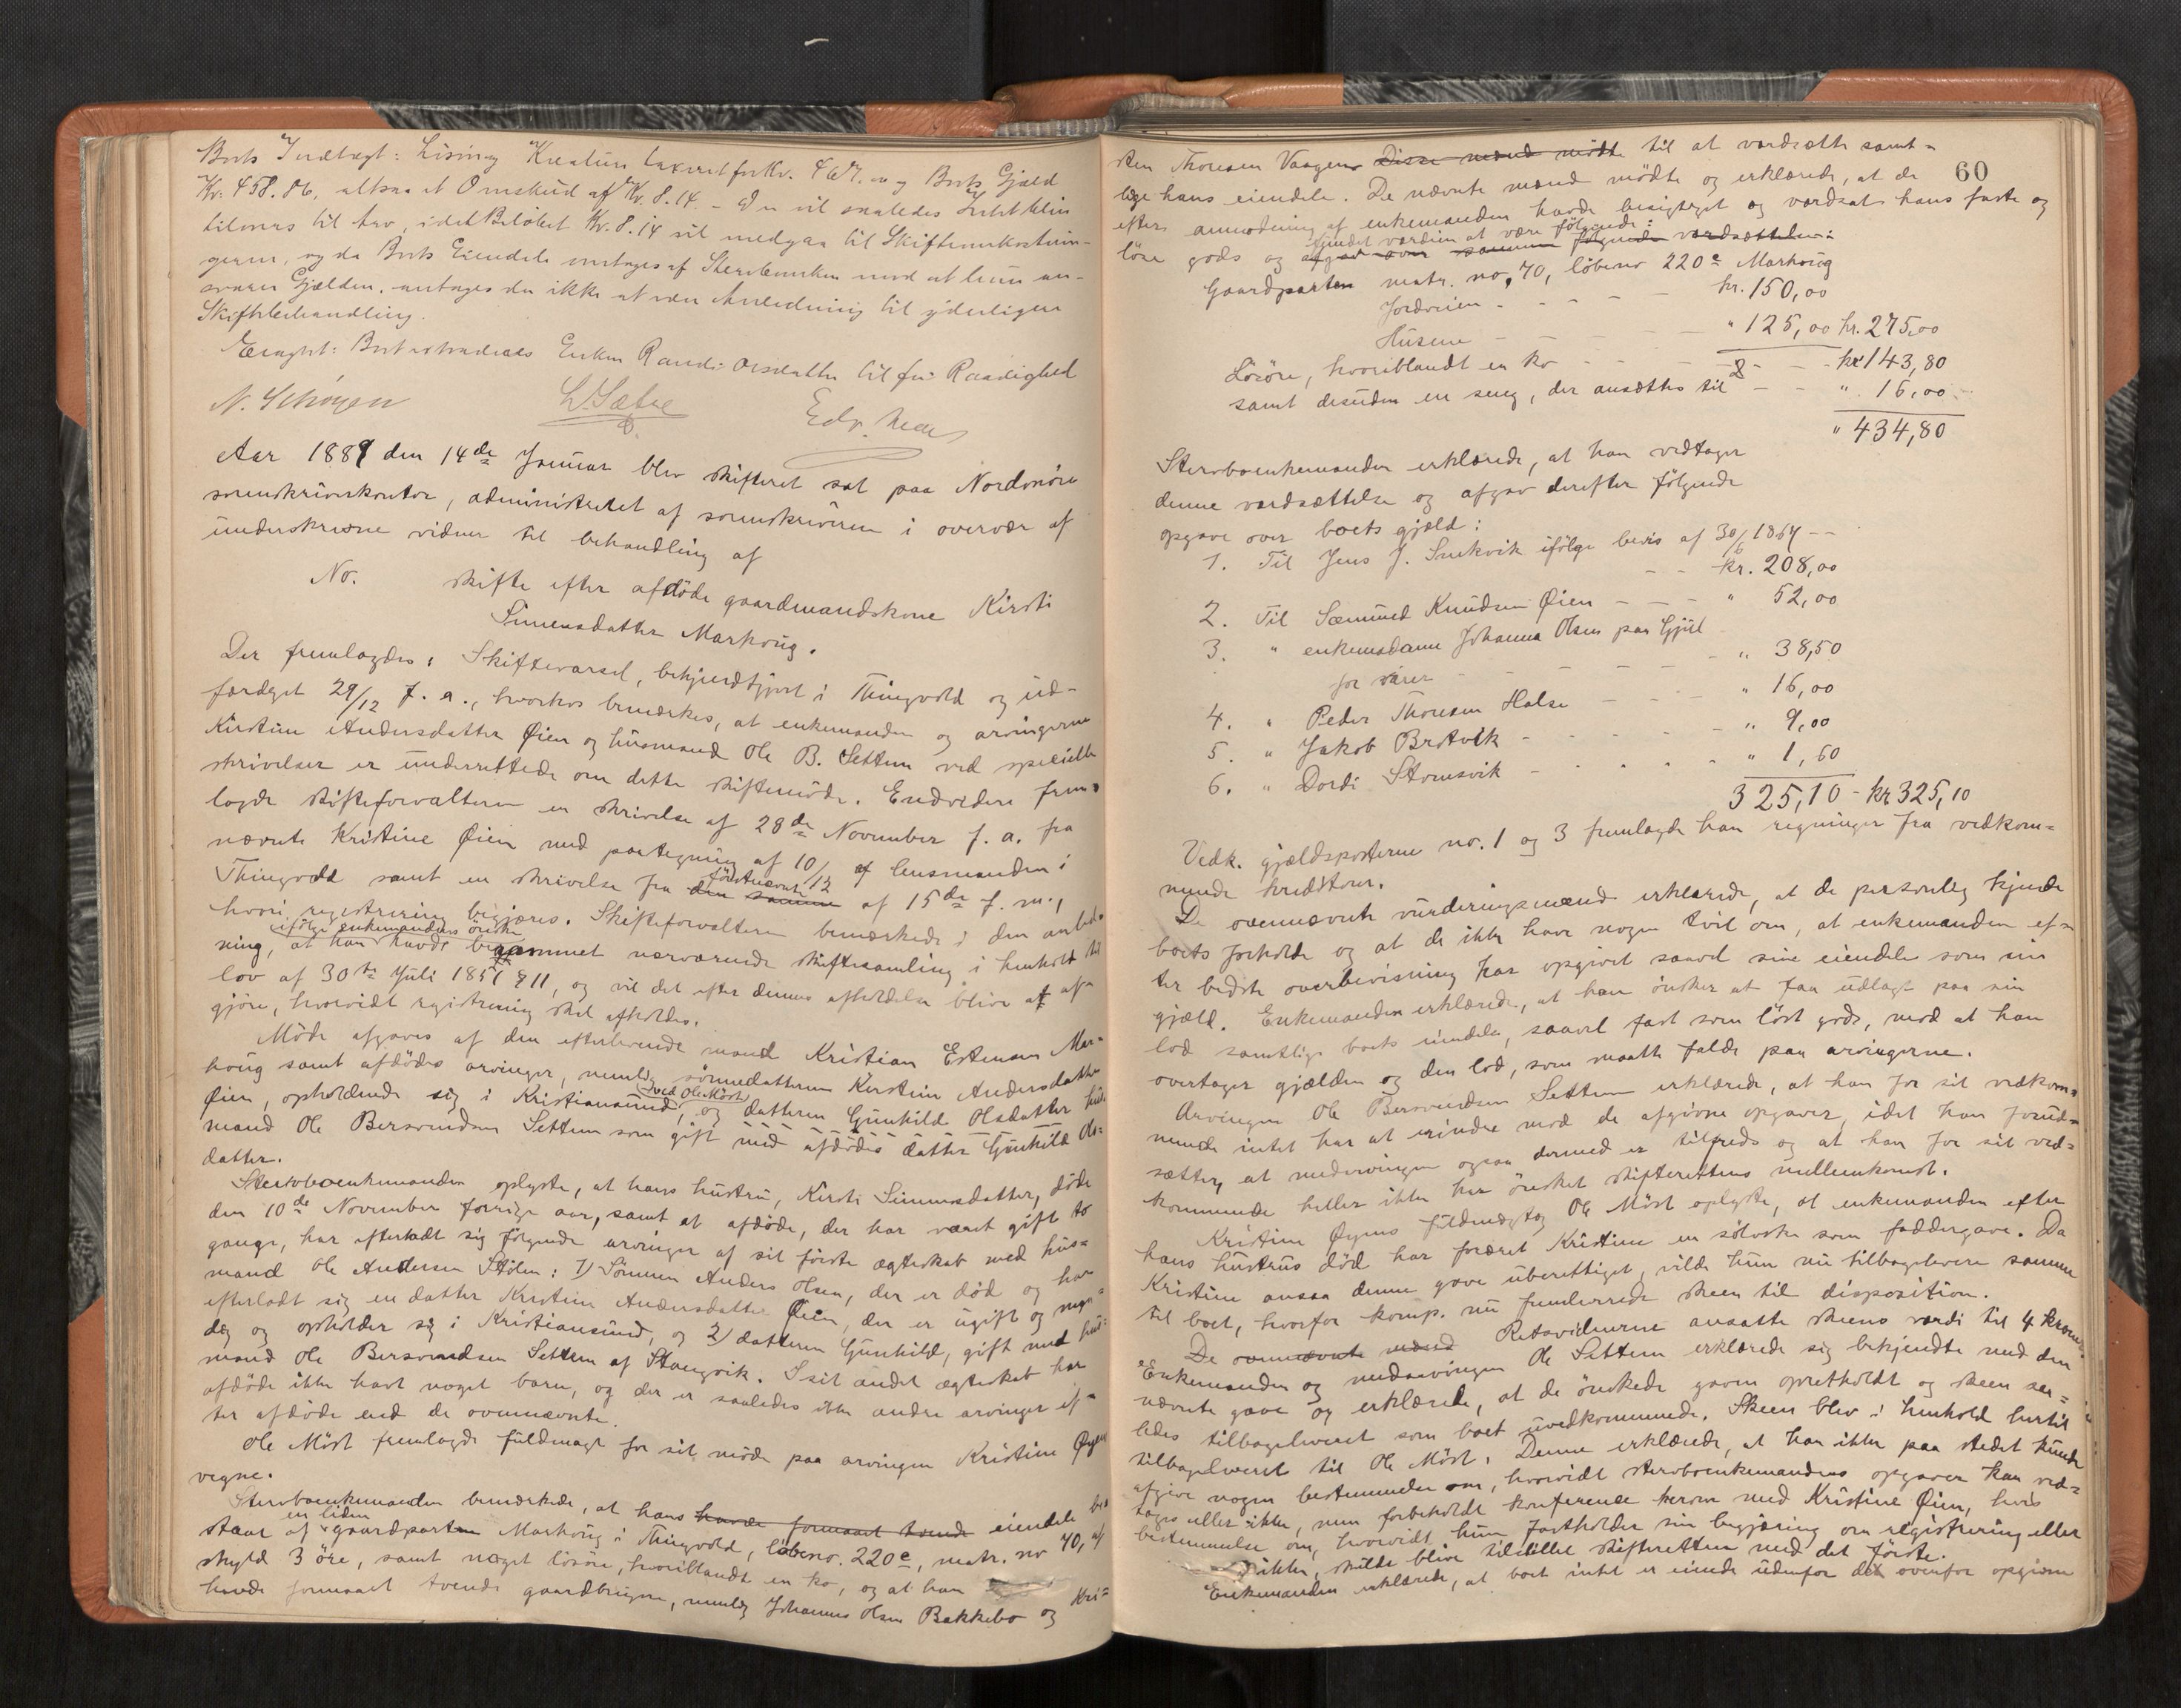 Boets Indtægt: Løsøre og Kreature taxeret for Kr. 467.00 og Boets Gjæld
Kr. 458.86, altsaa et Overskud af Kr. 8.14. – Der vil saaledes Intet blive
tilovers til Arv, idet Beløbet Kr. 8.14 vil medgaa til Skifteomkostnin-
gerne, og da Boets Eiendele overtages af Sterbeenken mod at hun an-
svarer Gjælden, antages der ikke at være Anledning til yderligere
Skiftebehandling.
Eragtet: Boet extraderes Enken Randi Olsdatter til fri Raadighed
N. Schøyen L. Sæter Edv.
Aar 1889 den 14de Januar blev skifteret sat paa Nordmøre
sorenskriverkontor, administreret af sorenskriveren i overvær af
underskrevne vidner til behandling af
No. skifte efter afdøde gaardmandskone Kirsti
Simensdatter Marhoug.
Der fremlagdes: Skiftevarsel, bekjendtgjort i Thingvold og ud-
færdiget 29/12 f. a., hvorhos bemærkes, at enkemanden og arvingerne
Kirstine Andersdatter Øien og husmand Ole B. Settem ved specielle
skrivelser er underrettede om dette skiftemøde. Endvidere frem-
lagde skifteforvalteren en skrivelse af 28de November f. a. fra
nævnte Kristine Øien med paategning af 10/12 af lensmanden i
Thingvold samt en skrivelse fra den samme førstnævnte af 15de f. m.,
hvori registrering begjæres. Skifteforvalteren bemærkede i den anled-
ning, at han ifølge enkemandens ønske havde berammet nærværende skiftesamling i henhold til
lov af 30te Juli 1851 § 11, og vil det efter dennes afholdelse blive at af-
gjøre, hvorvidt registrering skal afholdes.
Møde afgaves af den efterlevende mand Kristian Estensen Mar-
houg samt afdødes arvinger, nemlig sønnedatteren Kirstine Andersdatter
Øien, opholdende sig i Kristiansund, ved Ole Møst og datteren Gunhild Olsdatter hus-
mand Ole Bersvendsen Settem som gift med afdødes datter Gunhild Ols-
datter.
Stervboenkemanden oplyste, at hans hustru, Kirsti Simensdatter, døde
den 10de November forrige aar, samt at afdøde, der har været gift to
gange, har efterladt sig følgende arvinger af sit første ægteskab med hus-
mand Ole Andersen Stølen: 1) Sønnen Anders Olsen, der er død og har
efterladt sig en datter Kristine Andersdatter Øien, der er ugift og myn-
dig og opholder sig i Kristiansund, og 2) datteren Gunhild, gift med hus-
mand Ole Bersvendsen Settem af Stangvik. I sit andet ægteskab har
afdøde ikke havt noget barn, og der er saaledes ikke andre arvinger ef-
ter afdøde end de ovennævnte.
Ole Møst fremlagde fuldmagt for sit møde paa arvingen Kristine Øyens
vegne.
Stervboenkemanden bemærkede, at hans havde formaaet tvende eiendele be-
staar af en liden gaardparten Marhoug i Thingvold, løbeno. 220e, matr. no 70, af
skyld 3 øre, samt noget løsøre, hvoriblandt en ko, og at han
havde formaaet tvende gaardbrugere, nemlig Johannes Olsen Bakkebo og Kri-
60
sten Thoresen Vaagen Disse mænd mødte til at værdsætte samt-
lige hans eiendele. De nævnte mænd mødte og erklærede, at de
efter anmodning af enkemanden havde besigtiget og værdsat hans faste og
løse gods og afgav over samme følgende værdsættelse: fundet værdien at være følgende:
Gaardparten matr. no. 70, løbeno 220e Marhoug
Jordveien - - - - - kr. 150,00
Husene - - - - - " 125,00 kr. 275,00
Løsøre, hvoriblandt en ko - - - - - kr 143,80
samt desuden en seng, der ansættes til - - " 16,00
" 434,80
Stervboenkemanden erklærede, at han vedtager
denne værdsættelse og afgav derefter følgende
opgave over boets gjæld:
1. Til Jens J. Surkvik ifølge bevis af 30/6 1864 - -
- - kr. 208,00
2. Til Sæmund Knudsen Øien - - - " 52,00
3. " enkemadame Johanna Olsen paa Gjul
for varer - - - - " 38,50
4. " Peder Thoresen Halse - - - " 16,00
5. " Jakob Brøtvik - - - - " 9,00
6. " Dordi Stomsvik - - - - " 1,60
325,10 - kr 325,10
Vedk. gjældsposterne no. 1 og 3 fremlagde han regninger fra vedkom-
mende kreditorer.
De ovennævnte vurderingsmænd erklærede, at de personlig kjende
boets forholde og at de ikke have nogen tvil om, at enkemanden ef-
ter bedste overbevisning har opgivet saavel sine eiendele som sin
gjæld. Enkemanden erklærede, at han ønsker at faa udlagt paa sin
lod samtlige boets eiendele, saavel fast som løst gods, mod at han
overtager gjælden og den lod, som maatte falde paa arvingerne.
Arvingen Ole Bersvendsen Settem erklærede, at han for sit vedkom-
mende intet har at erindre mod de afgivne opgaver, idet han forud-
sætter, at medarvingen ogsaa dermed er tilfreds og at han for sit ved-
kommende heller ikke har ønsket skifterettens mellemkomst.
Kristine Øyens fuldmægtig Ole Møst oplyste, at enkemanden efter
hans hustrus død har foræret Kristine en sølvske som faddergave. Da
Kristine ansaa denne gave uberettiget, vilde hun nu tilbagelevere samme
til boet, hvorfor komp. nu fremleverede skeen til disposition.
De ovennævnte mænd Retsvidnerne ansatte skeens værdi til 4 kroner.
Enkemanden og medarvingen Ole Settem erklærede sig bekjendte med den
nævnte gave og erklærede, at de ønskede gaven opretholdt og skeen saa-
ledes tilbageleveret som boet uvedkommende. Skeen blev i henhold hertil
tilbageleveret til Ole Møst. Denne erklærede, at han ikke paa stedet kunde
afgive nogen bestemmelse om, hvorvidt stervboenkemandens opgaver kan ved-
tages eller ikke, men forbeholdt konference herom med Kristine Øien, hvis
bestemmelse om, hvorvidt hun fastholder sin begjæring om registrering eller
ikke, skulde blive tilstillet skifteretten med det første.
Enkemanden erklærede, at boet intet er eiende udenfor det ovenfor opgivne